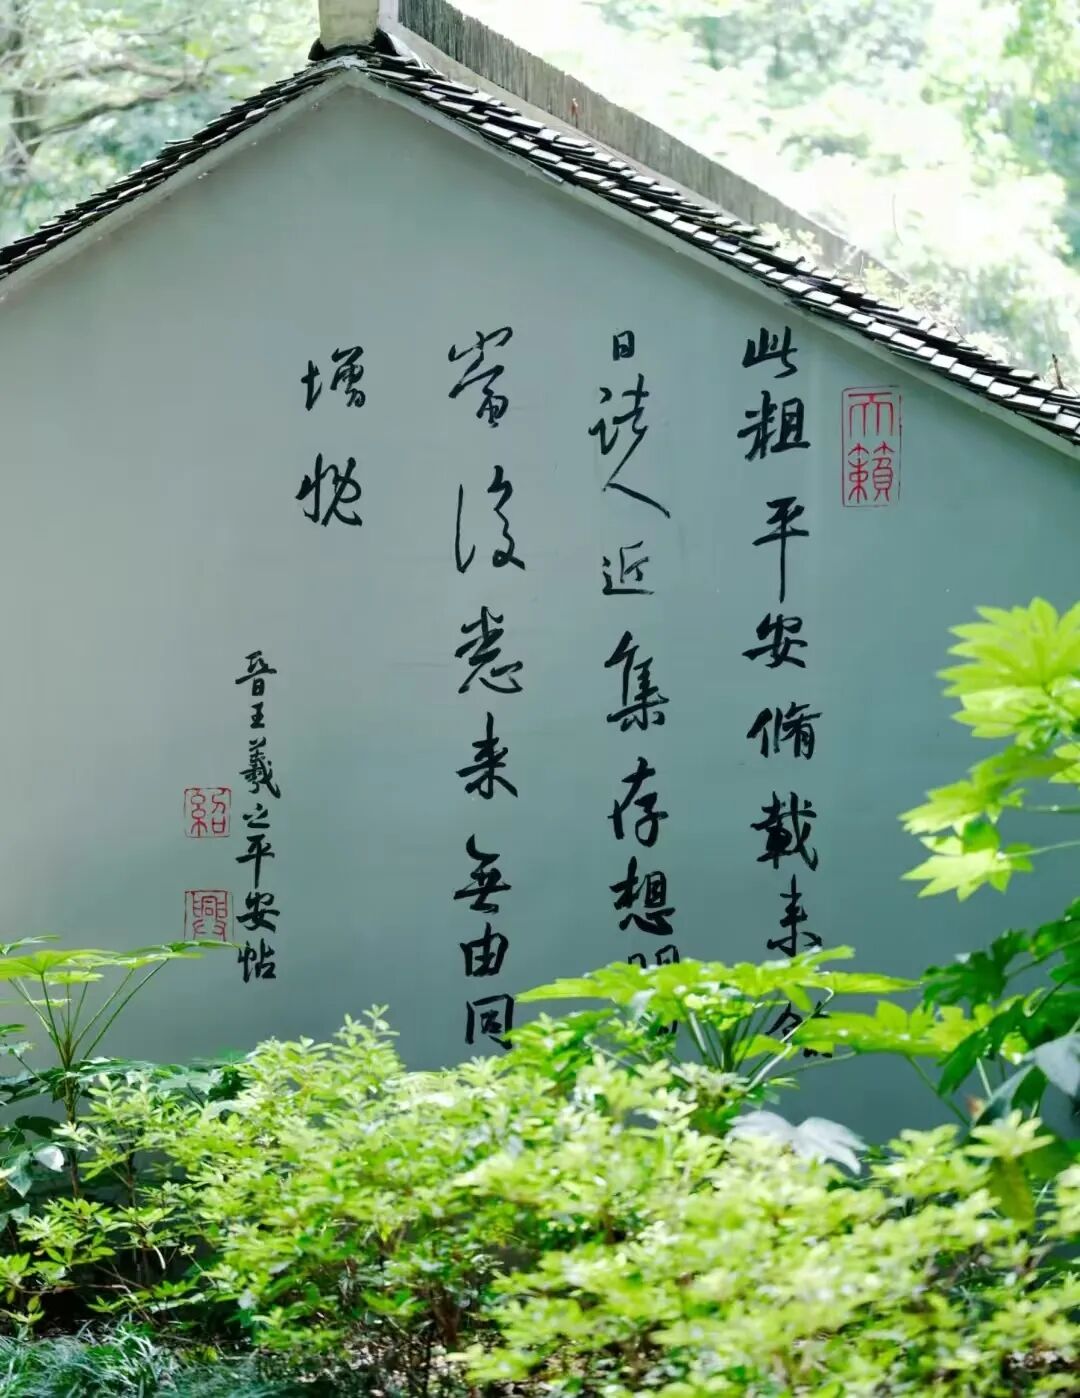 天籟
此粗平安脩載来
日諸人近集存想
當復悉来無由同
增慨
晉王羲之平安帖
紹興